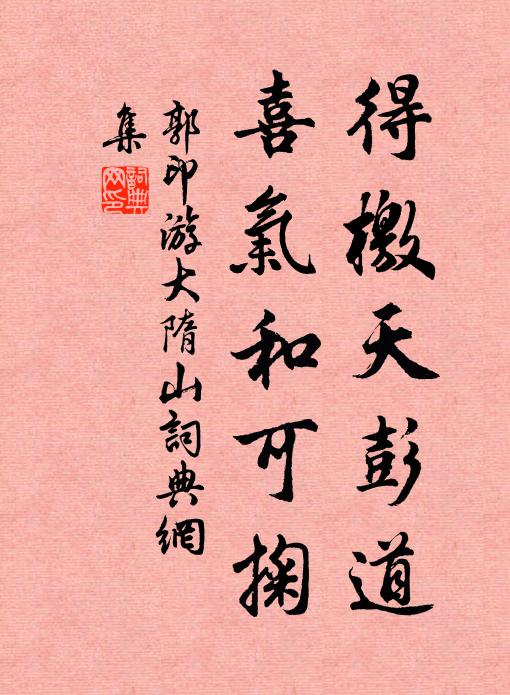 得檄天彭道
喜氣和可掬
郭印游大隋山詞典網
集
詞典
网印